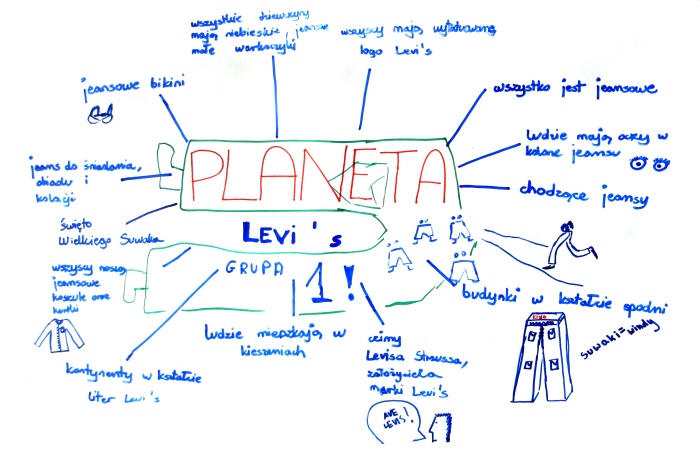 wszystkie dziewczyny
mają niebieskie, jeansowe
małe warkoczyki
wszyscy mają wytatuowane
logo Levi's
jeansowe bikini
wszystko jest jeansowe
ludzie mają oczy w
kolorze jeansu
chodzące jeansy
jeans do śniadania,
obiadu i
kolacji
PLANETA
święto
Wielkiego Suwaka
LEVI'S
GRUPA 1!
wszyscy noszą
jeansowe
koszule oraz
kurtki
budynki w kształcie spodni
KINO
suwaki = windy
ludzie mieszkają w
kieszeniach
czcimy
Levisa Straussa,
założyciela
marki Levi's
kontynenty w kształcie
liter Levi's
AVE
LEVIS!